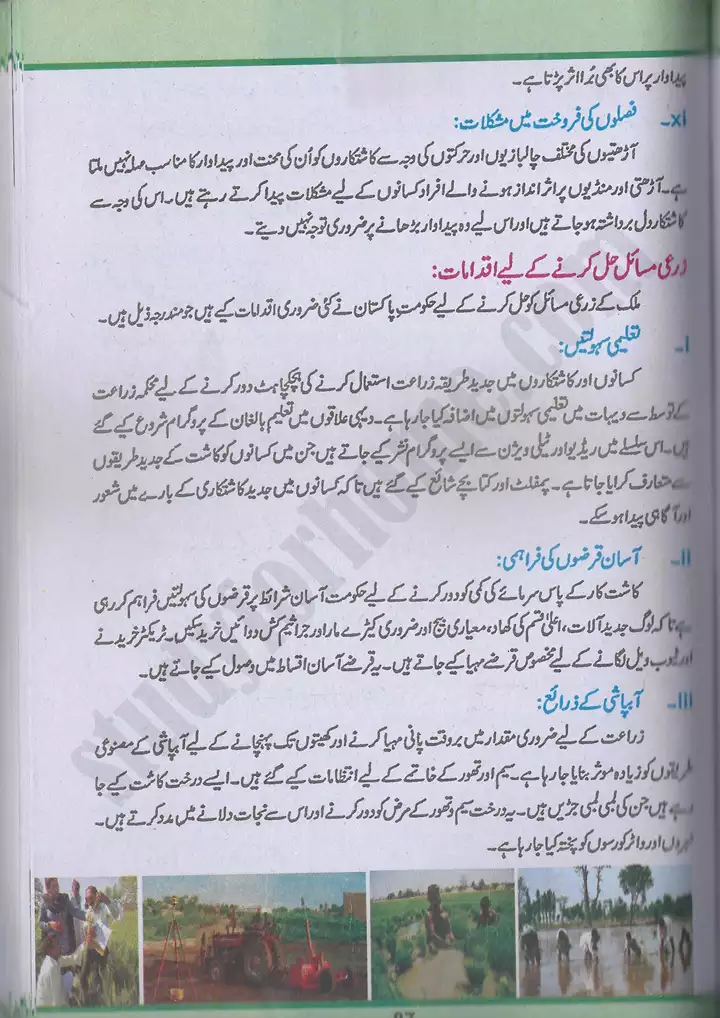 پیداوار پر اس کا بھی بُرا اثر پڑتا ہے۔
xi۔ فصلوں کی فروخت میں مشکلات:
آڑھتیوں کی مختلف چالبازیوں اور حرکتوں کی وجہ سے کاشتکاروں کو اُن کی محنت اور پیداوار کا مناسب صلہ نہیں ملتا
ہے۔ آڑھتی اور منڈیوں پر اثر انداز ہونے والے افراد کسانوں کے لیے مشکلات پیدا کرتے رہتے ہیں۔ اس کی وجہ سے
کاشتکار دل برداشتہ ہو جاتے ہیں اور اس لیے وہ پیداوار بڑھانے پر ضروری توجہ نہیں دیتے۔
زرعی مسائل حل کرنے کے لیے اقدامات:
ملک کے زرعی مسائل کو حل کرنے کے لیے حکومتِ پاکستان نے کئی ضروری اقدامات کیے ہیں جو مندرجہ ذیل ہیں۔
i۔ تعلیمی سہولتیں:
کسانوں اور کاشتکاروں میں جدید طریقہ زراعت استعمال کرنے کی ہچکچاہٹ دور کرنے کے لیے محکمہ زراعت
کے توسط سے دیہات میں تعلیمی سہولتوں میں اضافہ کیا جا رہا ہے۔ دیہی علاقوں میں تعلیم بالغان کے پروگرام شروع کیے گئے
ہیں۔ اس سلسلے میں ریڈیو اور ٹیلی ویژن سے ایسے پروگرام نشر کیے جاتے ہیں جن میں کسانوں کو کاشت کے جدید طریقوں
سے متعارف کرایا جاتا ہے۔ پمفلٹ اور کتابچے شائع کیے گئے ہیں تاکہ کسانوں میں جدید کاشتکاری کے بارے میں شعور
اور آگاہی پیدا ہو سکے۔
ii۔ آسان قرضوں کی فراہمی:
کاشت کار کے پاس سرمائے کی کمی کو دور کرنے کے لیے حکومت آسان شرائط پر قرضوں کی سہولتیں فراہم کر رہی
ہے تاکہ لوگ جدید آلات، اعلیٰ قسم کی کھاد، معیاری بیج اور ضروری کیڑے مار اور جراثیم کش دوائیں خرید سکیں۔ ٹریکٹر خریدنے
اور ٹیوب ویل لگانے کے لیے مخصوص قرضے مہیا کیے جاتے ہیں۔ یہ قرضے آسان اقساط میں وصول کیے جاتے ہیں۔
iii۔ آبپاشی کے ذرائع:
زراعت کے لیے ضروری مقدار میں بروقت پانی مہیا کرنے اور کھیتوں تک پہنچانے کے لیے آبپاشی کے مصنوعی
طریقوں کو زیادہ موثر بنایا جا رہا ہے۔ سیم اور تھور کے خاتمے کے لیے انتظامات کیے گئے ہیں۔ ایسے درخت کاشت کیے جا
رہے ہیں جن کی لمبی لمبی جڑیں ہیں۔ یہ درخت سیم و تھور کے مرض کو دور کرنے اور اس سے نجات دلانے میں مدد کرتے ہیں۔
نہروں اور واٹر کورسوں کو پختہ کیا جا رہا ہے۔
studyforhome.com